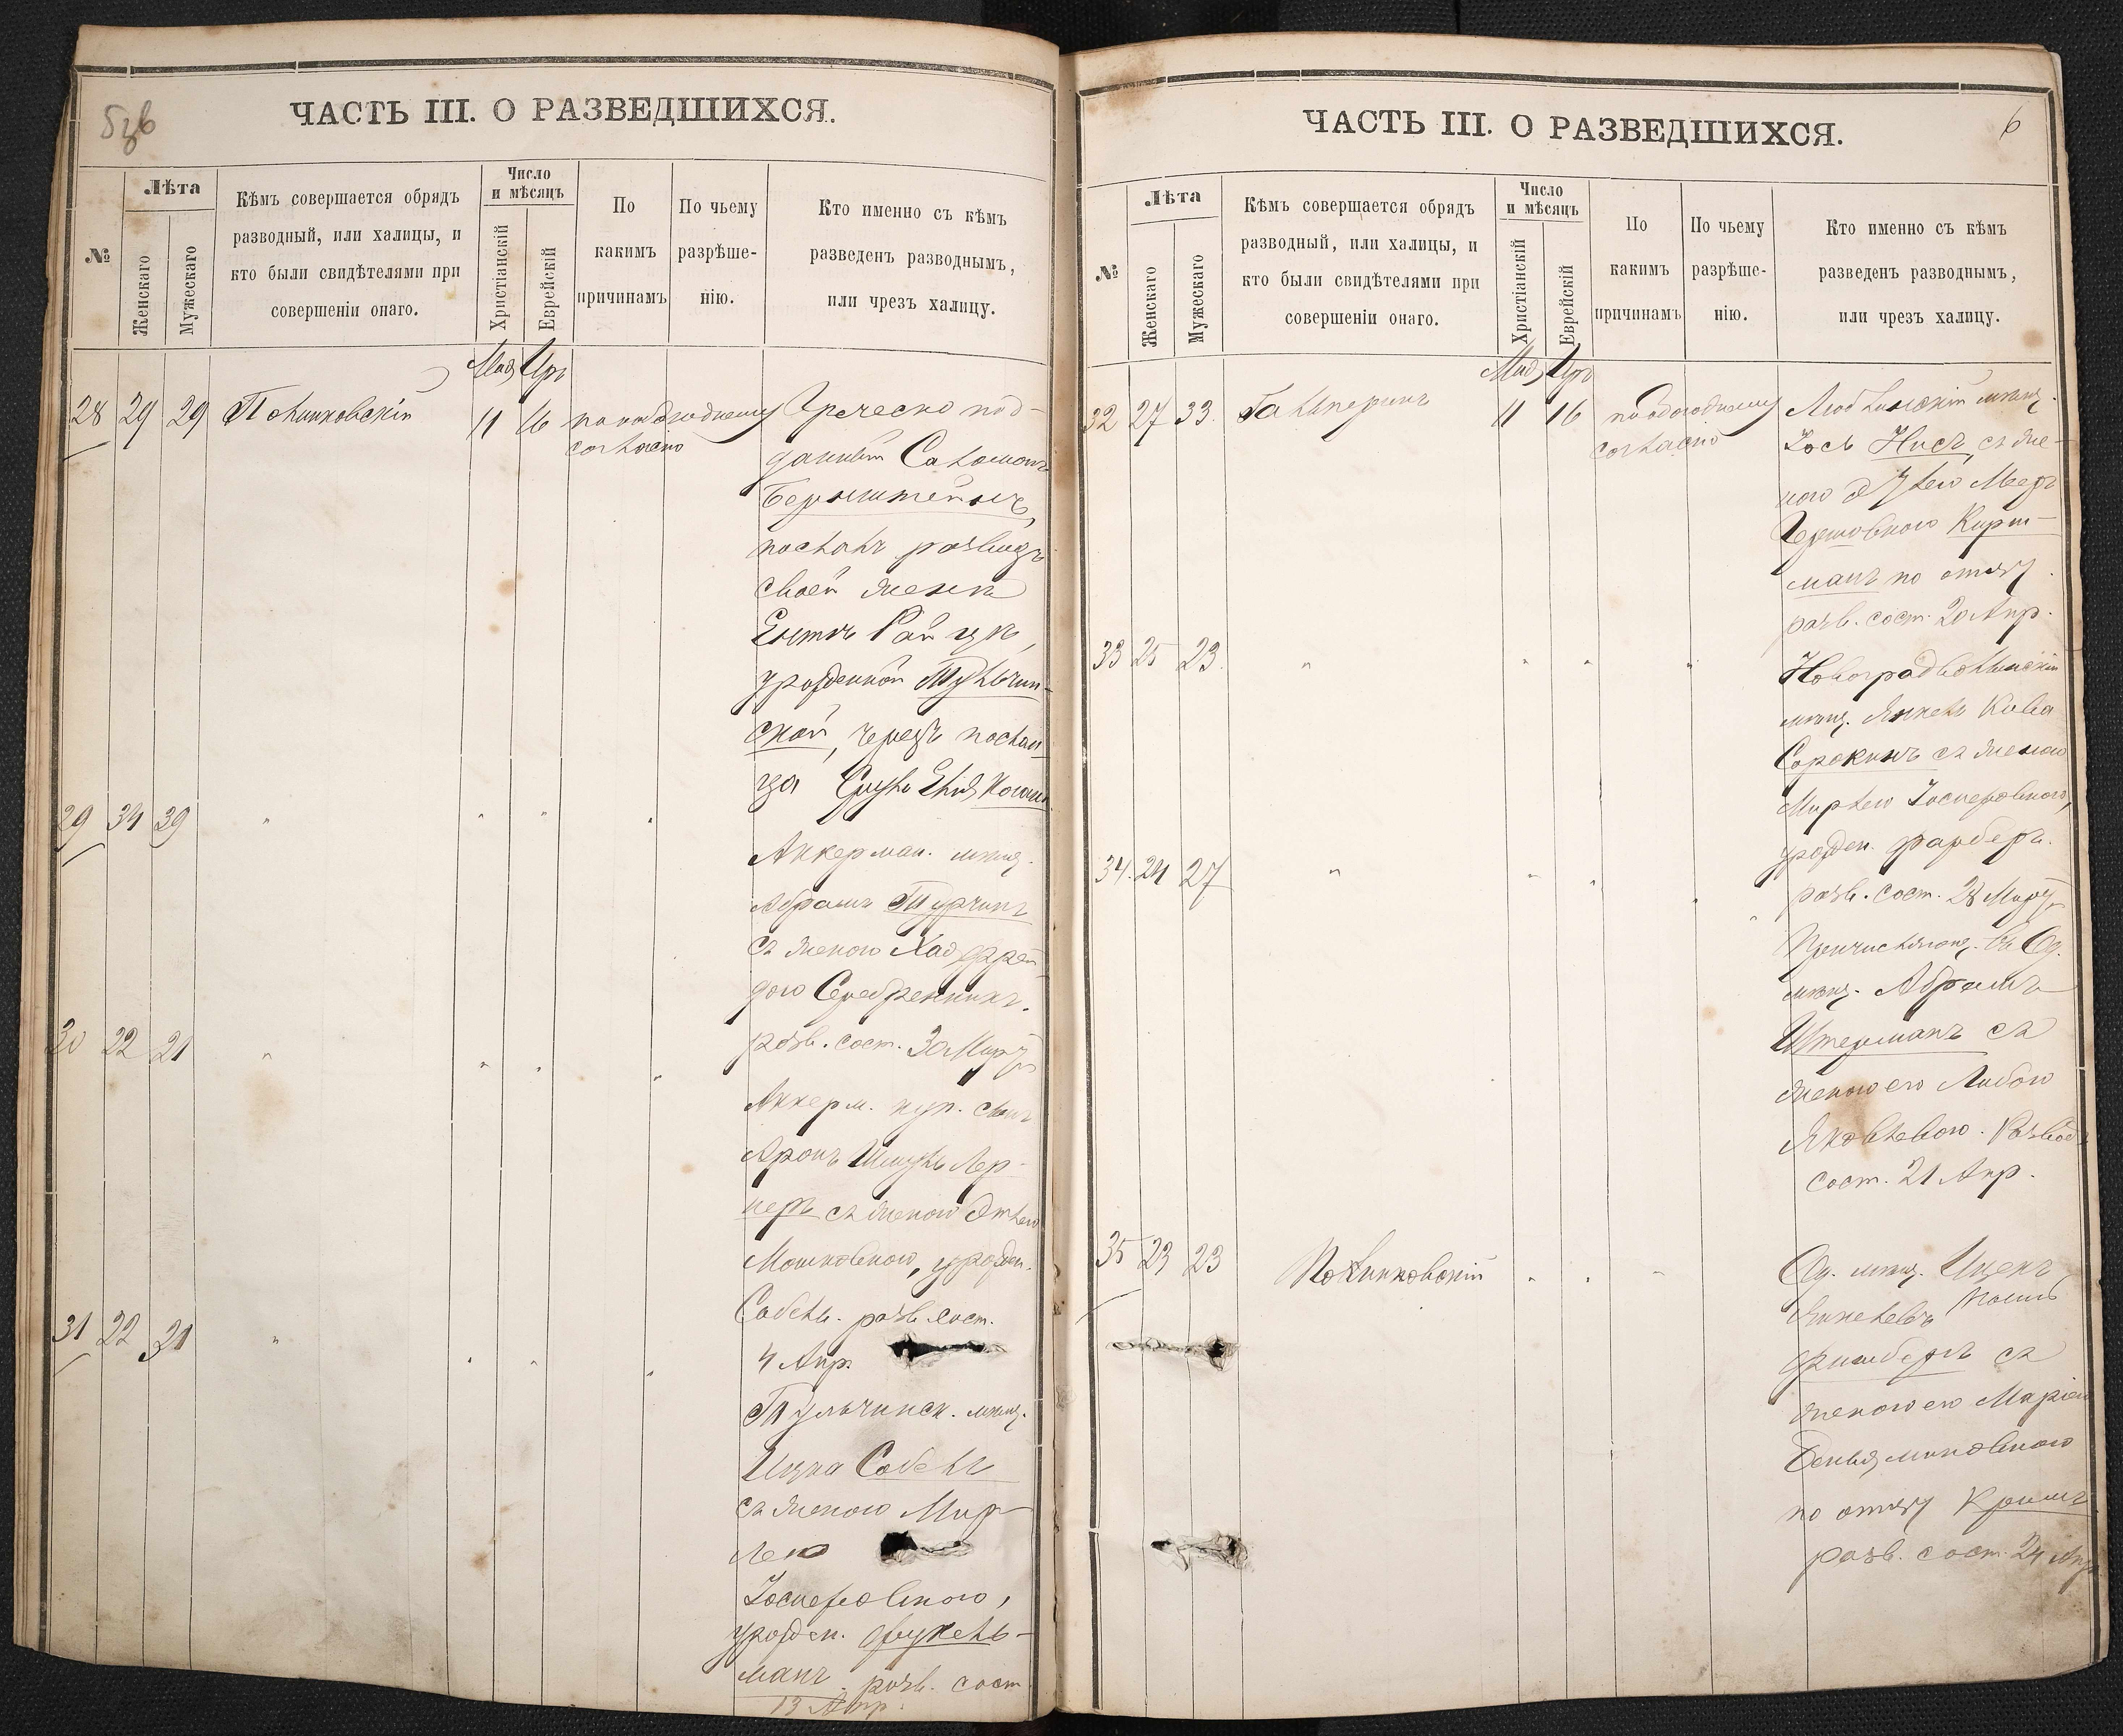 5зв
ЧАСТЬ III. О РАЗВЕДШИХСЯ.
№
Лѣта
Женскаго
Мужескаго
Кѣмъ совершается обрядъ
разводный, или халицы, и
кто были свидѣтелями при
совершеніи онаго.
Число
и мѣсяцъ
Христіанскій
Еврейскій
По
какимъ
причинамъ
По чьему
разрѣше-
нію.
Кто именно съ кѣмъ
разведенъ разводнымъ,
или чрезъ халицу.
28 29 29
11 16
согласію
Греческо под-
данный Саломонъ
Бернштейнъ,
послалъ разводъ
своей женѣ
урожденной Тульчин-
ской, черезъ послан
ца Коганъ
29 34 39 " " " "
Аккерман. мѣщ.
Абрамъ Турчинъ
съ женою
Серебренникъ.
разв. сост. 30 Марта
30 22 21 " " " "
Аккерм. куп. сынъ
Аронъ Шмуль Лер-
неръ съ женою Этлею
Мошковною, урожден.
Собель. разв. сост.
4 Апр.
31 22 21 " " " "
Тульчинск. мѣщ.
Ицка Собель
съ женою Мир-
лею
Іосиефовною,
урожден. Фукель-
манъ. разв. сост.
13 Апр.
6
ЧАСТЬ III. О РАЗВЕДШИХСЯ.
№
Лѣта
Женскаго
Мужескаго
Кѣмъ совершается обрядъ
разводный, или халицы, и
кто были свидѣтелями при
совершеніи онаго.
Число
и мѣсяцъ
Христіанскій
Еврейскій
По
какимъ
причинамъ
По чьему
разрѣше-
нію.
Кто именно съ кѣмъ
разведенъ разводнымъ,
или чрезъ халицу.
32 27 33. Гальперинъ 11 16
согласію
мѣщ.
Іось Нисъ, съ же-
ною
Гершовною Кирш-
манъ по отцу
разв. сост. 20 Апр.
33 25 23. " " " "
Новоградволынскій
мѣщ. Янкель Кива
Сорокинъ съ женою
Мирлею Іосиефовною,
урожден. Фарберъ.
разв. сост. 28 Марта
34. 24 27 " " " "
Причисляющ. въ Од.
мѣщ. Абрамъ
Штерманъ съ
женою его Либою
Яковлевою. Разводъ
сост. 21 Апр.
35 23 23 " " "
Од. мѣщ. Ицекъ
Янкелевъ
Фимбергъ съ
женою его Маріею
Беньяминовною
по отцу Кримъ
разв. сост. 24 Апр.